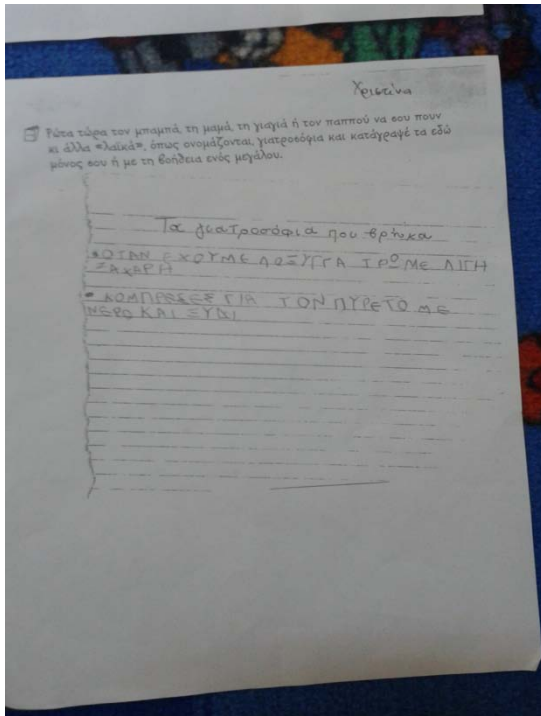 Χριστίνα
Ρώτα τώρα τον μπαμπά, τη μαμά, τη γιαγιά ή τον παππού να σου πουν
κι άλλα «λαϊκά», όπως ονομάζονται, γιατροσόφια και κατάγραψέ τα εδώ
μόνος σου ή με τη βοήθεια ενός μεγάλου.
Τα γιατροσόφια που βρήκα
• ΟΤΑΝ ΕΧΟΥΜΕ ΛΟΞΥΓΓΑ ΤΡΩΜΕ ΛΙΓΗ
ΖΑΧΑΡΗ
• ΚΟΜΠΡΕΣΕΣ ΓΙΑ ΤΟΝ ΠΥΡΕΤΟ ΜΕ
ΝΕΡΟ ΚΑΙ ΞΥΔΙ